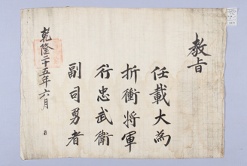 教旨
任載大為
折衝將軍
行忠武衛
副司勇者
乾隆三十五年六月 日